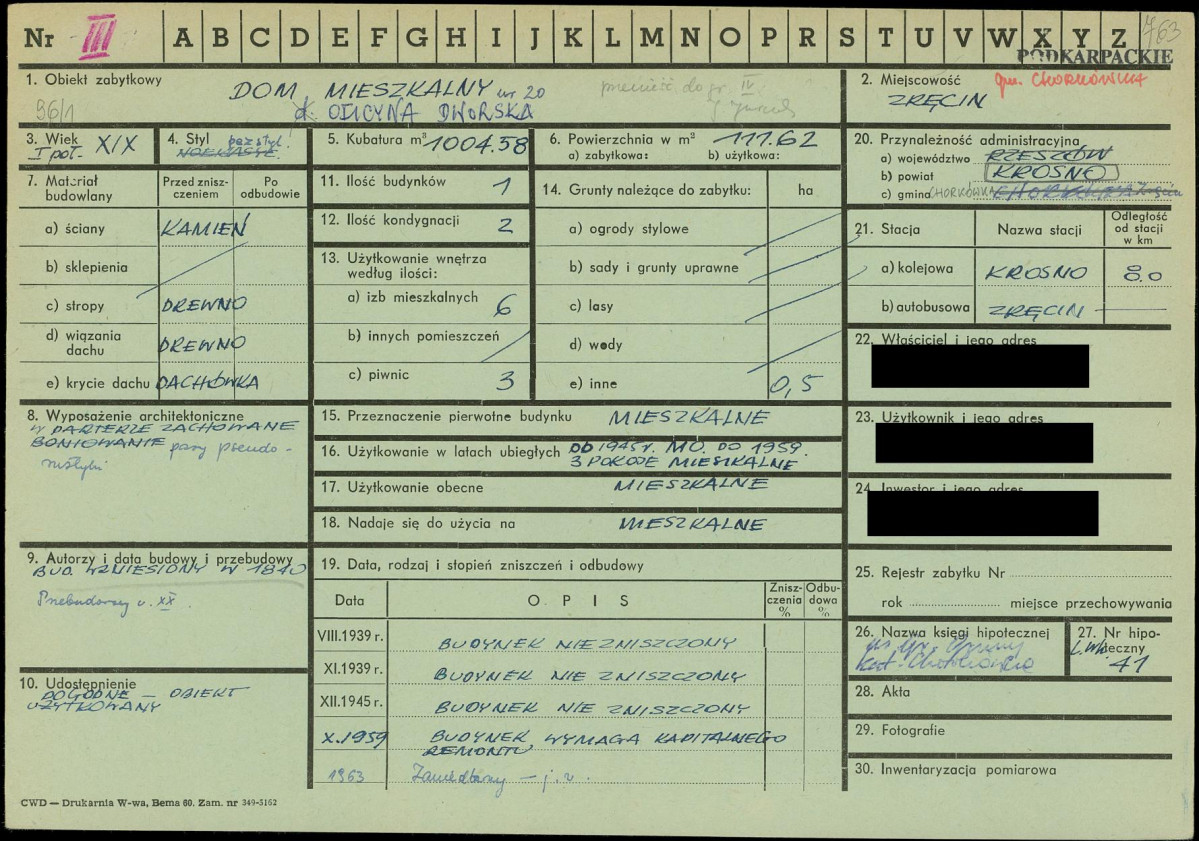 Nr III A B C D E F G H I J K L M N O P R S T U V W X Y Z 763
PODKARPACKIE
1. Obiekt zabytkowy
96/1
DOM MIESZKALNY nr 20
d. OFICYNA DWORSKA
przenieść do gr. IV
2. Miejscowość
gm. CHORKÓWKA
ZRĘCIN
3. Wiek
I poł. XIX
4. Styl bezstyl.
5. Kubatura m³ 1004.58
6. Powierzchnia w m² 111.62
a) zabytkowa: b) użytkowa:
20. Przynależność administracyjna
a) województwo RZESZÓW
b) powiat KROSNO
c) gmina CHORKÓWKA
7. Materiał budowlany
Przed zniszczeniem
Po odbudowie
a) ściany KAMIEŃ
b) sklepienia
c) stropy DREWNO
d) wiązania dachu DREWNO
e) krycie dachu DACHÓWKA
11. Ilość budynków 1
12. Ilość kondygnacji 2
13. Użytkowanie wnętrza według ilości:
a) izb mieszkalnych 6
b) innych pomieszczeń
c) piwnic 3
14. Grunty należące do zabytku: ha
a) ogrody stylowe
b) sady i grunty uprawne
c) lasy
d) wody
e) inne 0,5
21. Stacja
Nazwa stacji
Odległość od stacji w km
a) kolejowa KROSNO 8.0
b) autobusowa ZRĘCIN —
22. Właściciel i jego adres
23. Użytkownik i jego adres
24. Inwestor i jego adres
8. Wyposażenie architektoniczne
W PARTERZE ZACHOWANE
BONIOWANIE pasy pseudo-
15. Przeznaczenie pierwotne budynku MIESZKALNE
16. Użytkowanie w latach ubiegłych OD 1945 r. MO. DO 1959.
3 POKOJE MIESZKALNE
17. Użytkowanie obecne MIESZKALNE
18. Nadaje się do użycia na MIESZKALNE
9. Autorzy i data budowy i przebudowy
BUD. WZNIESIONY W 1840
XX.
10. Udostępnienie
DOGODNE — OBIEKT
UŻYTKOWANY
19. Data, rodzaj i stopień zniszczeń i odbudowy
Data
OPIS
Zniszczenia %
Odbudowa %
VIII.1939 r. BUDYNEK NIEZNISZCZONY
XI.1939 r. BUDYNEK NIE ZNISZCZONY
XII.1945 r. BUDYNEK NIE ZNISZCZONY
X.1959 BUDYNEK WYMAGA KAPITALNEGO
REMONTU
1963 Zaniedbany — j. w.
25. Rejestr zabytku Nr
rok miejsce przechowywania
26. Nazwa księgi hipotecznej
27. Nr hipoteczny
41
28. Akta
29. Fotografie
30. Inwentaryzacja pomiarowa
CWD — Drukarnia W-wa, Bema 60. Zam. nr 349-5162